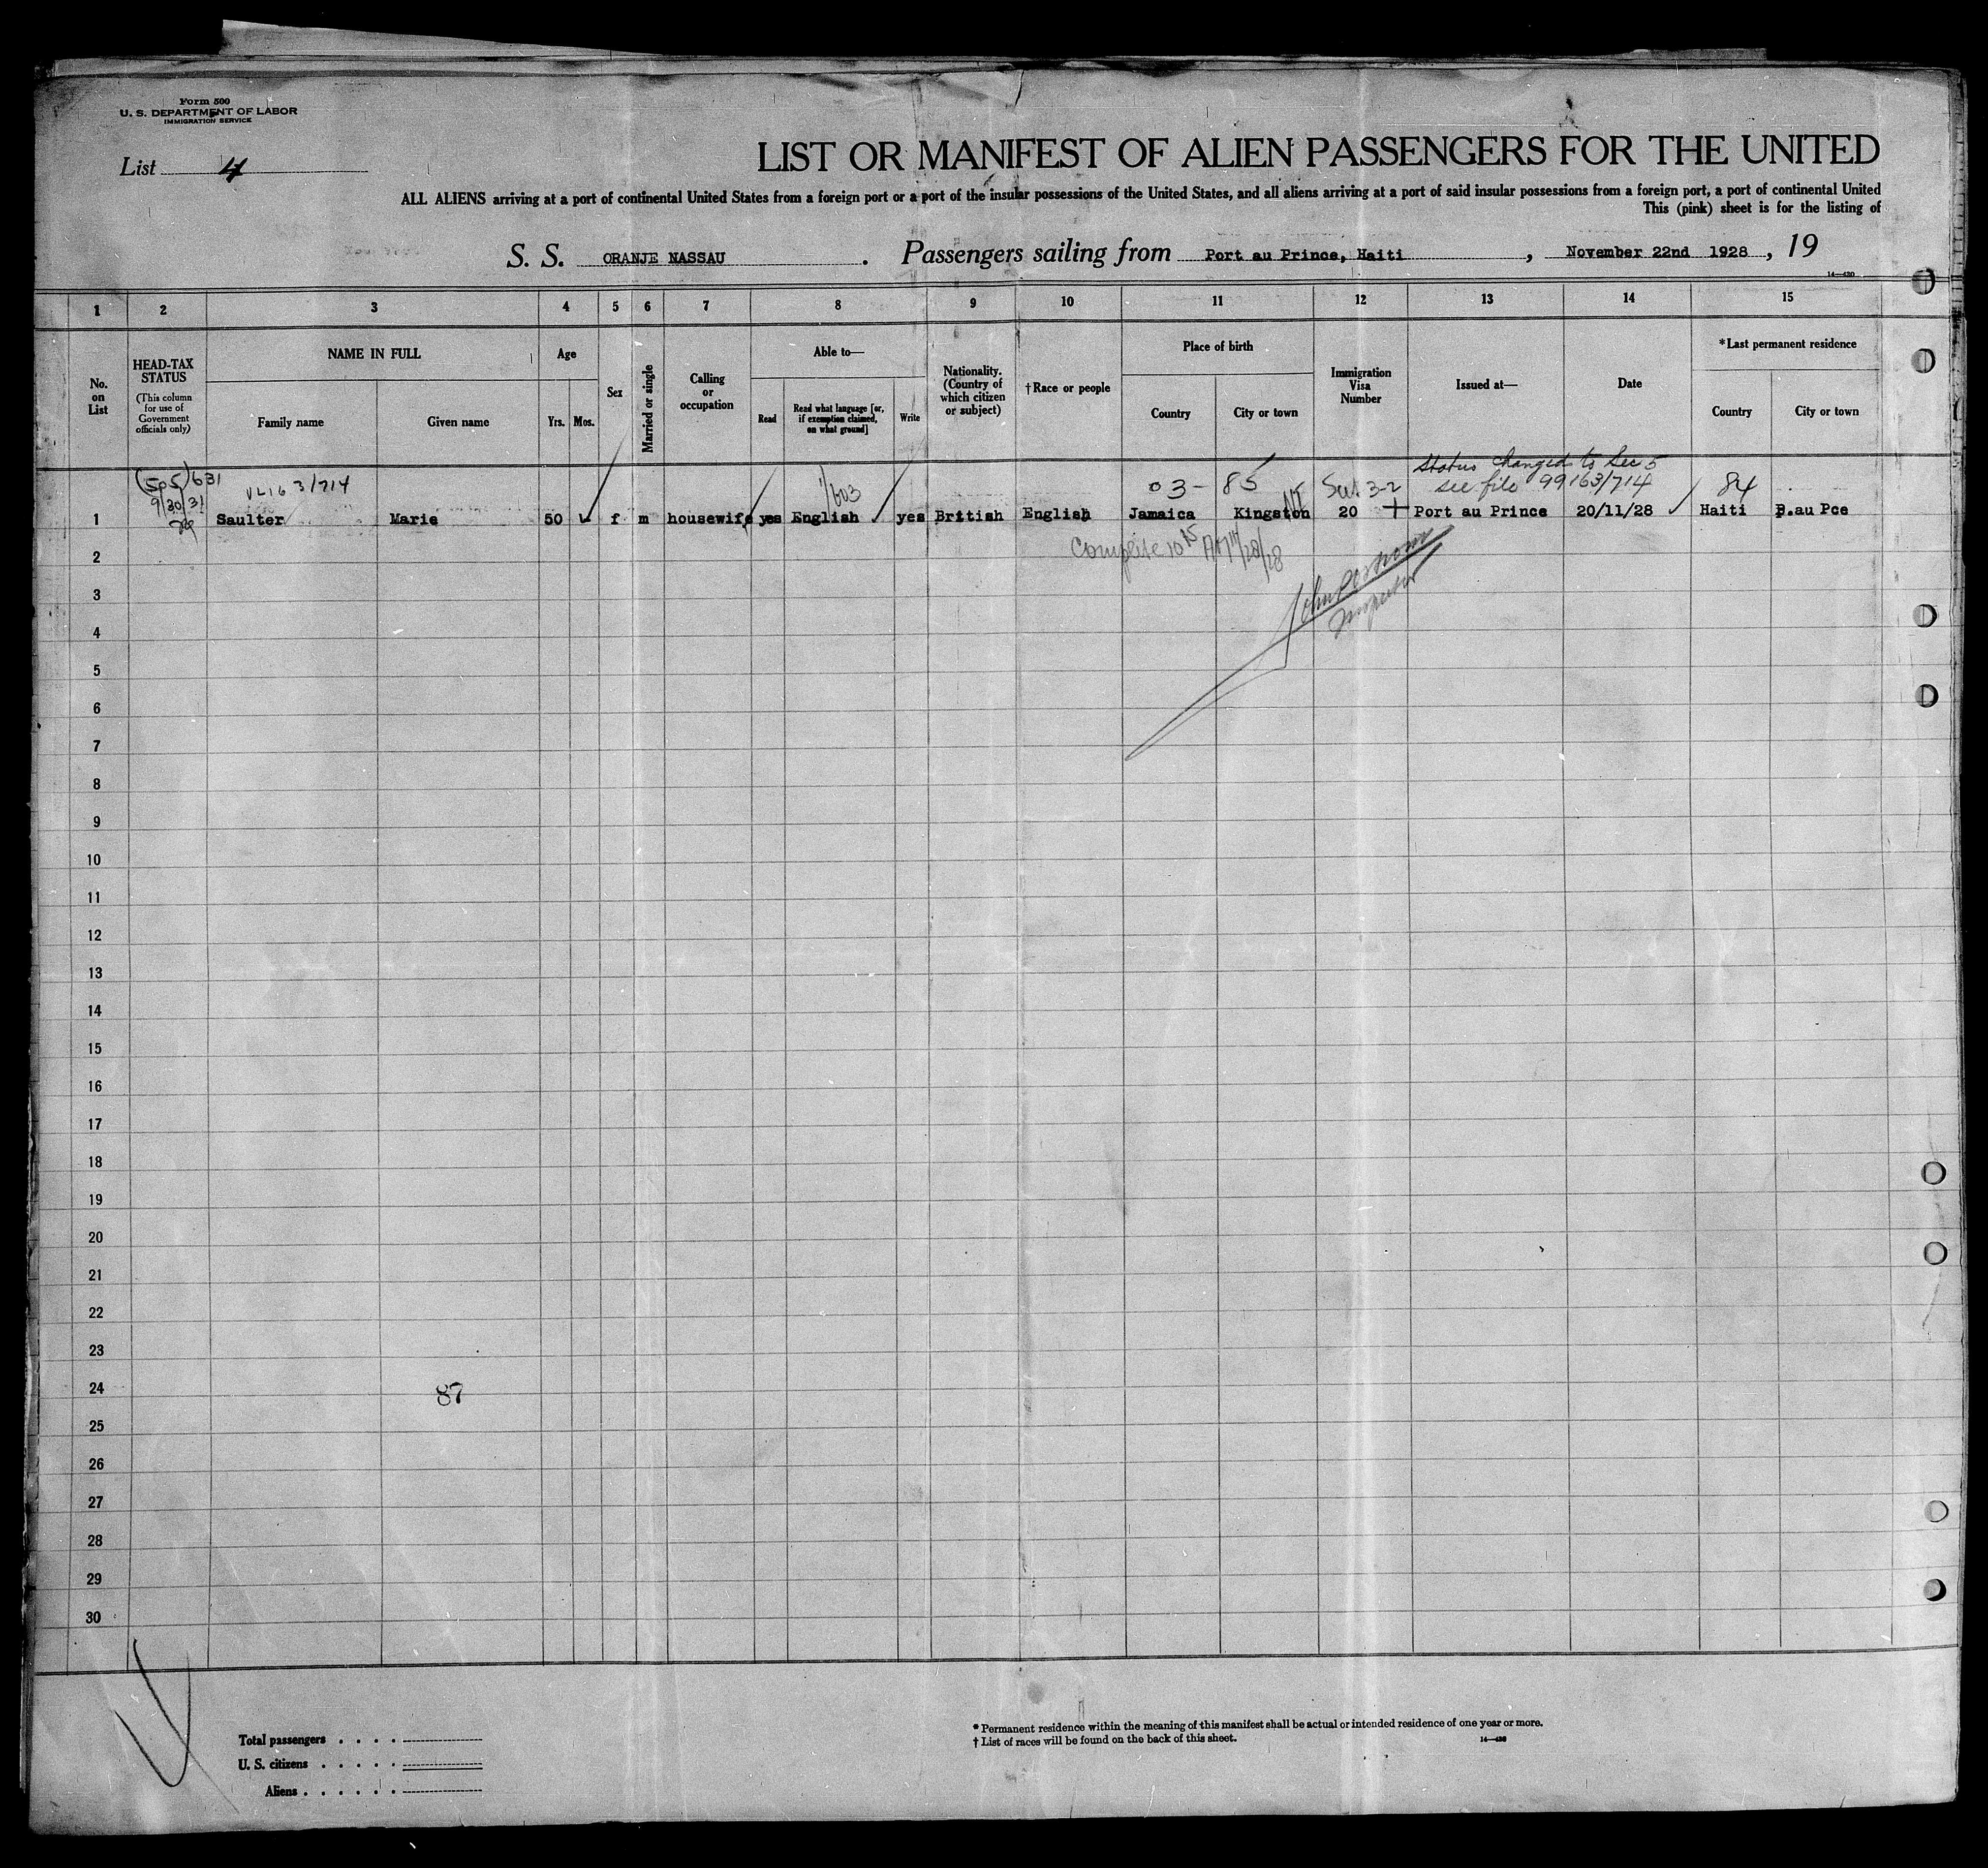 Form 500
U. S. DEPARTMENT OF LABOR
IMMIGRATION SERVICE
List 4
LIST OR MANIFEST OF ALIEN PASSENGERS FOR THE UNITED
ALL ALIENS arriving at a port of continental United States from a foreign port or a port of the insular possessions of the United States, and all aliens arriving at a port of said insular possessions from a foreign port, a port of continental United
This (pink) sheet is for the listing of
S. S. ORANJE NASSAU . Passengers sailing from Port au Prince, Haiti , November 22nd 1928 , 19
14—430
1 2 3 4 5 6 7 8 9 10 11 12 13 14 15
No. on List
HEAD-TAX STATUS
(This column for use of Government officials only)
NAME IN FULL
Family name
Given name
Age
Yrs. Mos.
Sex
Married or single
Calling or occupation
Able to—
Read
Read what language [or, if exemption claimed, on what ground]
Write
Nationality. (Country of which citizen or subject)
† Race or people
Place of birth
Country
City or town
Immigration Visa Number
Issued at—
Date
*Last permanent residence
Country
City or town
Status changed to Sec 5
(505)631 3/714 1/603 03- 85 3-2 see file 99163/714 84
9/30/31
1 Saulter Marie 50 f m housewife yes English yes British English Jamaica Kingston 20 Port au Prince 20/11/28 Haiti P.au Pce
2
3
4
5
6
7
8
9
10
11
12
13
14
15
16
17
18
19
20
21
22
23
24 87
25
26
27
28
29
30
Total passengers . . . .
U. S. citizens . . . . .
Aliens . . . . . .
* Permanent residence within the meaning of this manifest shall be actual or intended residence of one year or more.
† List of races will be found on the back of this sheet.
14—430